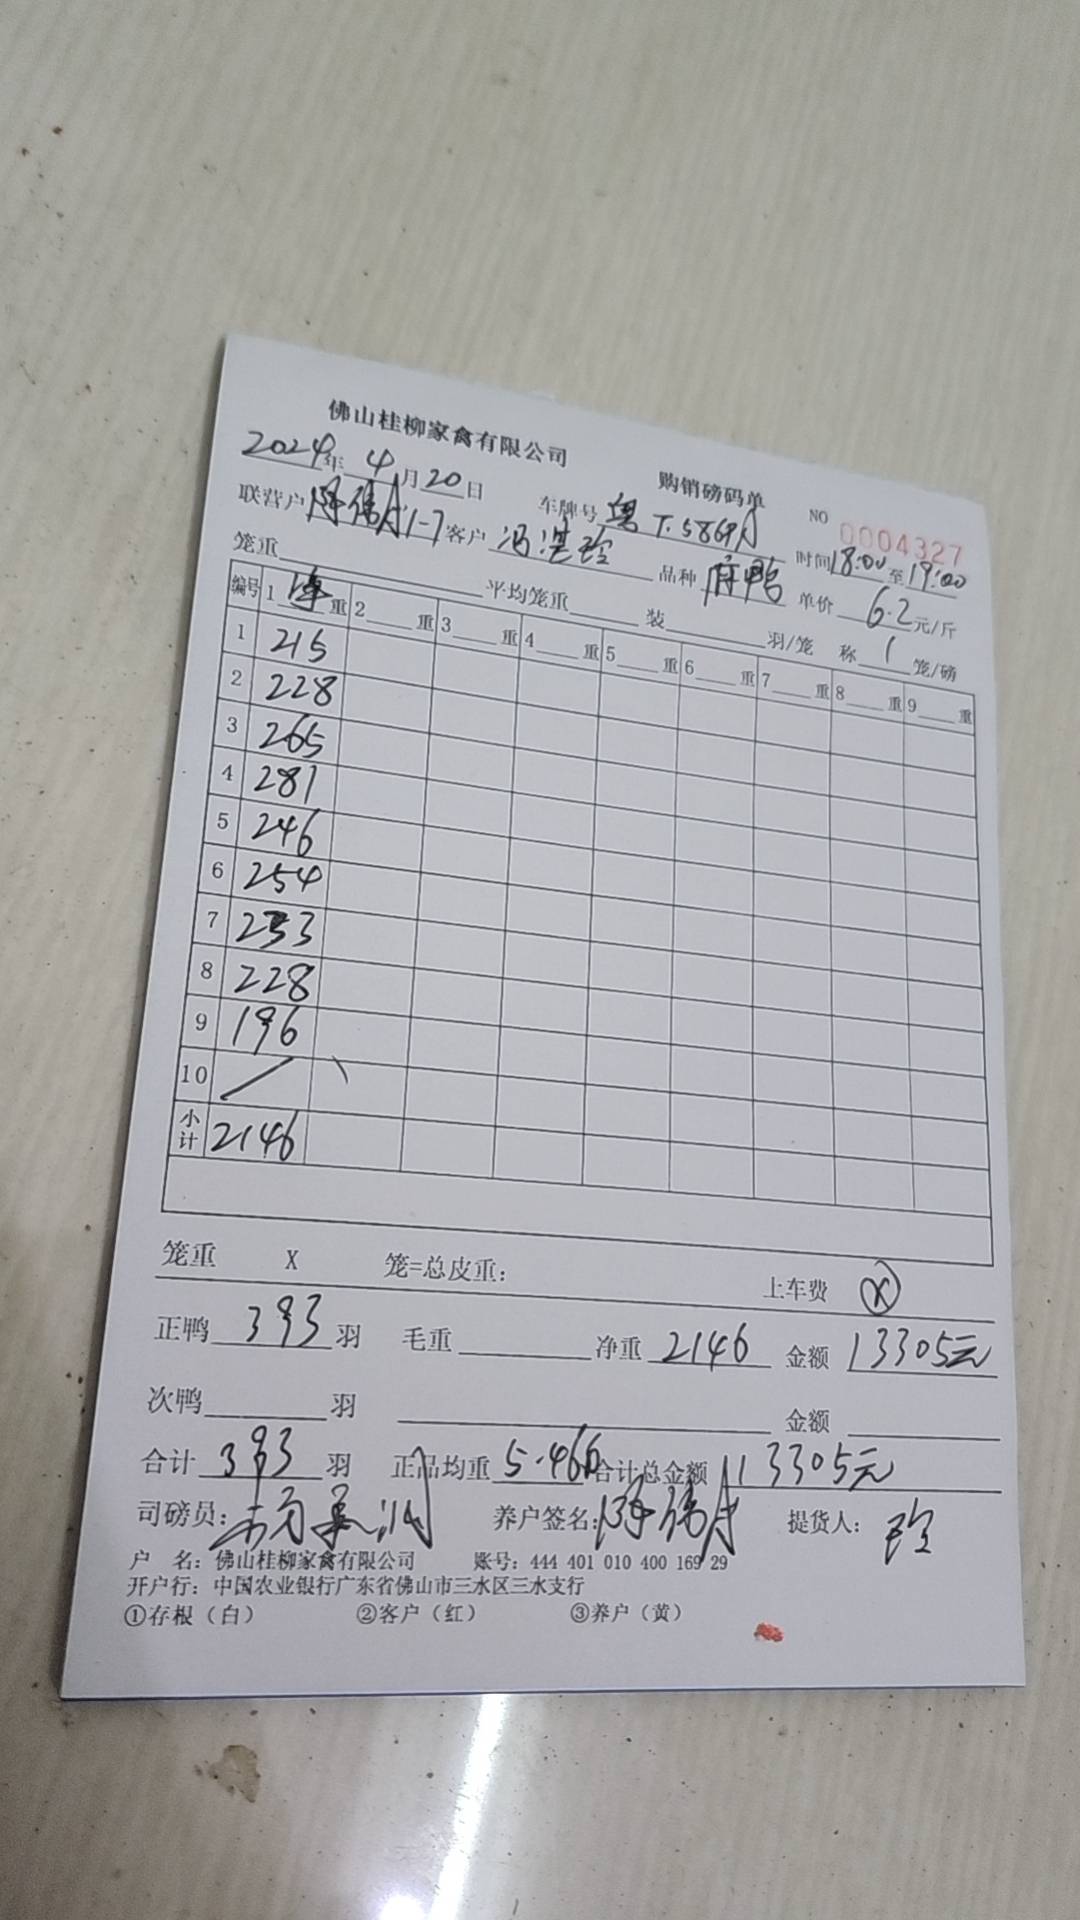 佛山桂柳家禽有限公司 购销磅码单 NO 0004327
2024年 4月20日 车牌号 粤T.5869A 时间18:00至19:00
联营户 1-7 客户 冯湛玲 品种 麻鸭 单价 6.2元/斤
笼重 平均笼重 装 羽/笼 称 1 笼/磅
编号 1 净 重 2 重 3 重 4 重 5 重 6 重 7 重 8 重 9 重
1 215
2 228
3 265
4 281
5 246
6 254
7 233
8 228
9 196
10 /
小计 2146
笼重 X 笼=总皮重: 上车费 ⓧ
正鸭 393 羽 毛重 净重 2146 金额 13305元
次鸭 羽 金额
合计 393 羽 正品均重 5.466 合计总金额 13305元
司磅员: 养户签名: 提货人: 玲
户 名: 佛山桂柳家禽有限公司 账号: 444 401 010 400 169 29
开户行: 中国农业银行广东省佛山市三水区三水支行
①存根（白） ②客户（红） ③养户（黄）